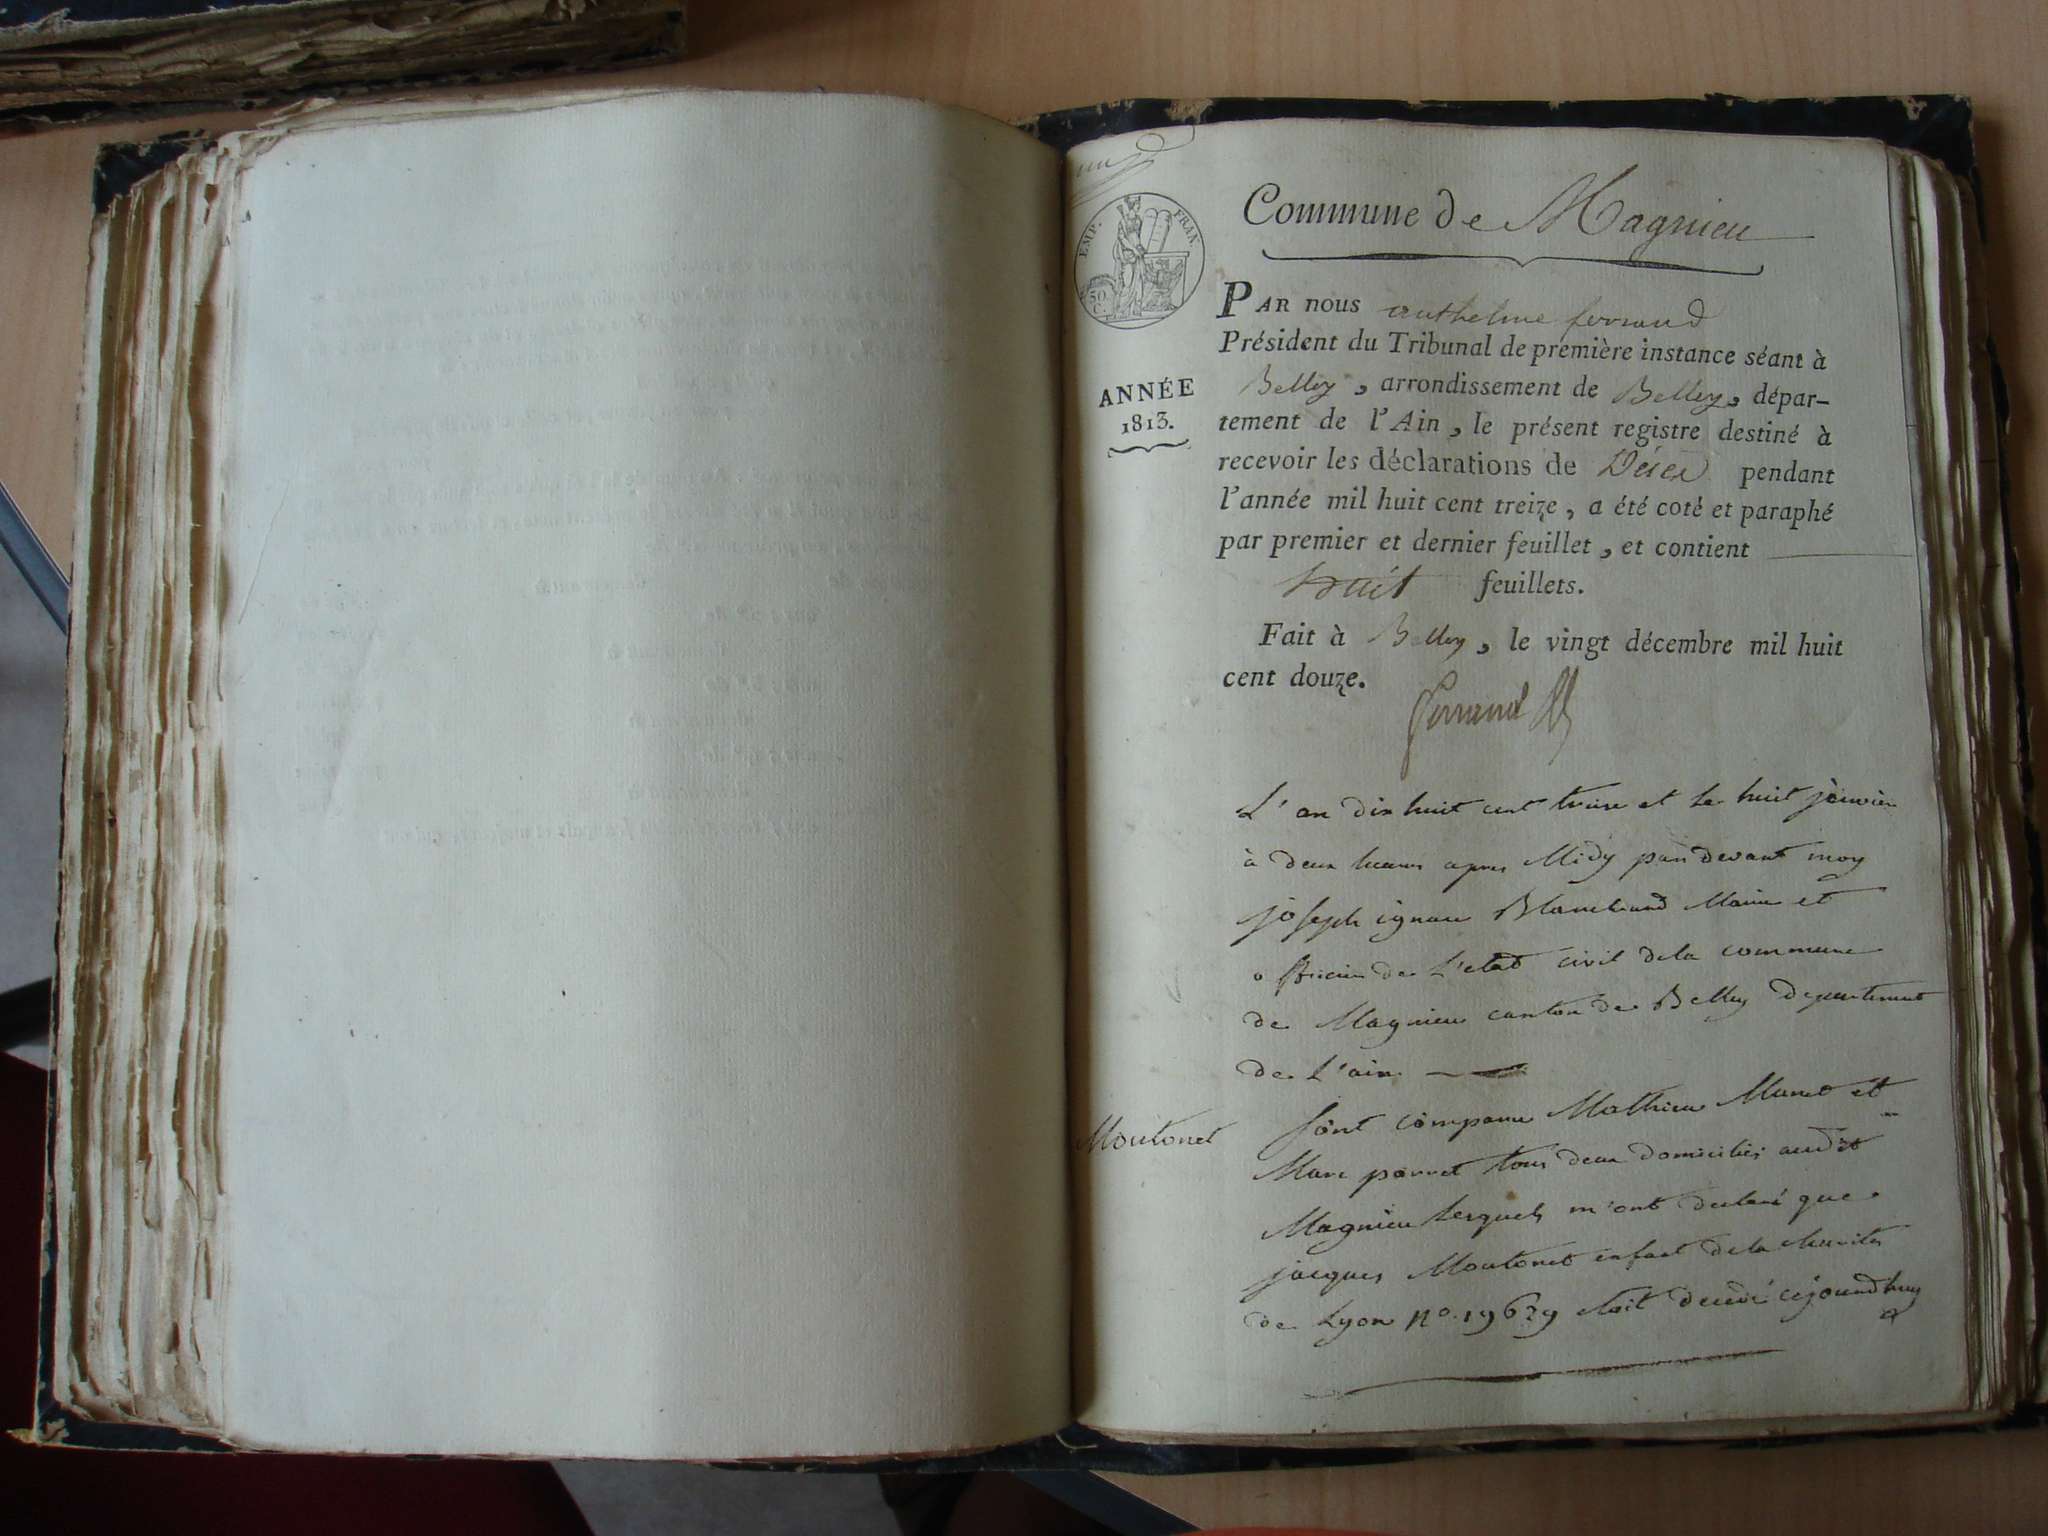 Commune de Magnieu
EMP. FRAN.
50
C.
PAR nous anthelme ferrand
Président du Tribunal de première instance séant à
Belley, arrondissement de Belley, dépar-
ANNÉE
1813.
tement de l'Ain, le présent registre destiné à
recevoir les déclarations de Décès pendant
l'année mil huit cent treize, a été coté et paraphé
par premier et dernier feuillet, et contient
huit feuillets.
Fait à Belley, le vingt décembre mil huit
cent douze.
Ferrand
L'an dix huit cent treize et le huit janvier
à deux heures apres Midy par devant moy
joseph ignace Blanchard Maire et
officier de L'etat civil de la commune
de Magnieu canton de Belley departement
de L'ain
Moutonet
sont comparu Mathieu Munet et
Marc pernet tous deux domiciliés audit
Magnieu lesquels m'ont declaré que
jacques Moutonet enfant de la charité
de Lyon No. 19629 etoit decedé cejourdhuy